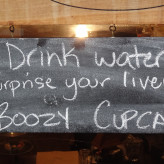 Drink water
surprise your liver
Boozy Cupca